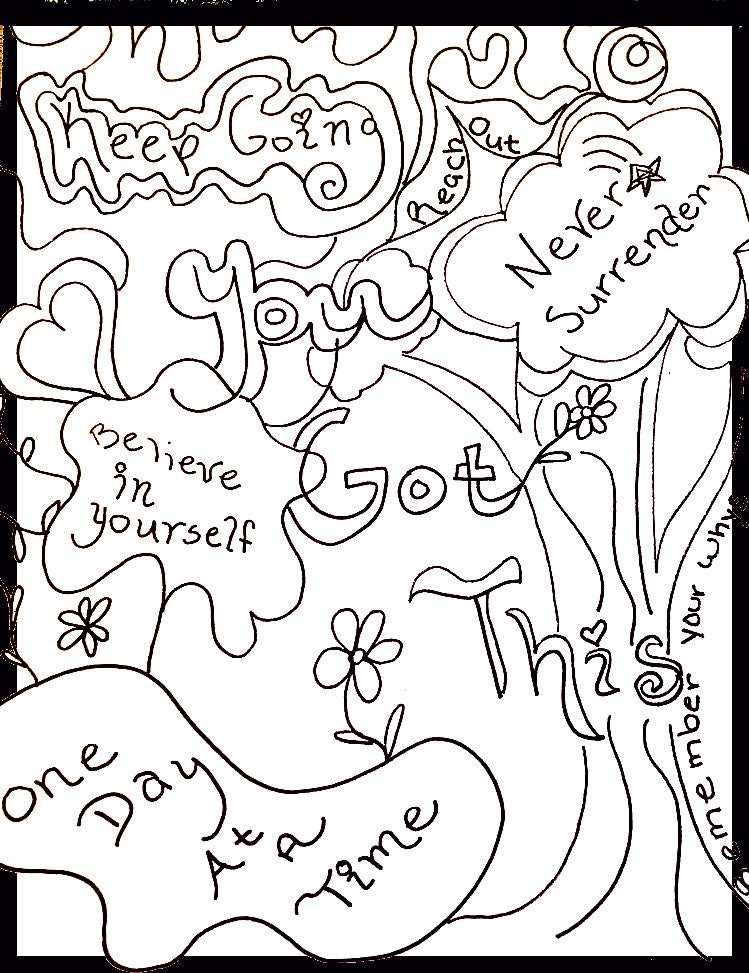 Keep Going
Reach Out
Never
Surrender
You
Believe
in
yourself
Got
This
Remember your why
One
Day
At A
Time